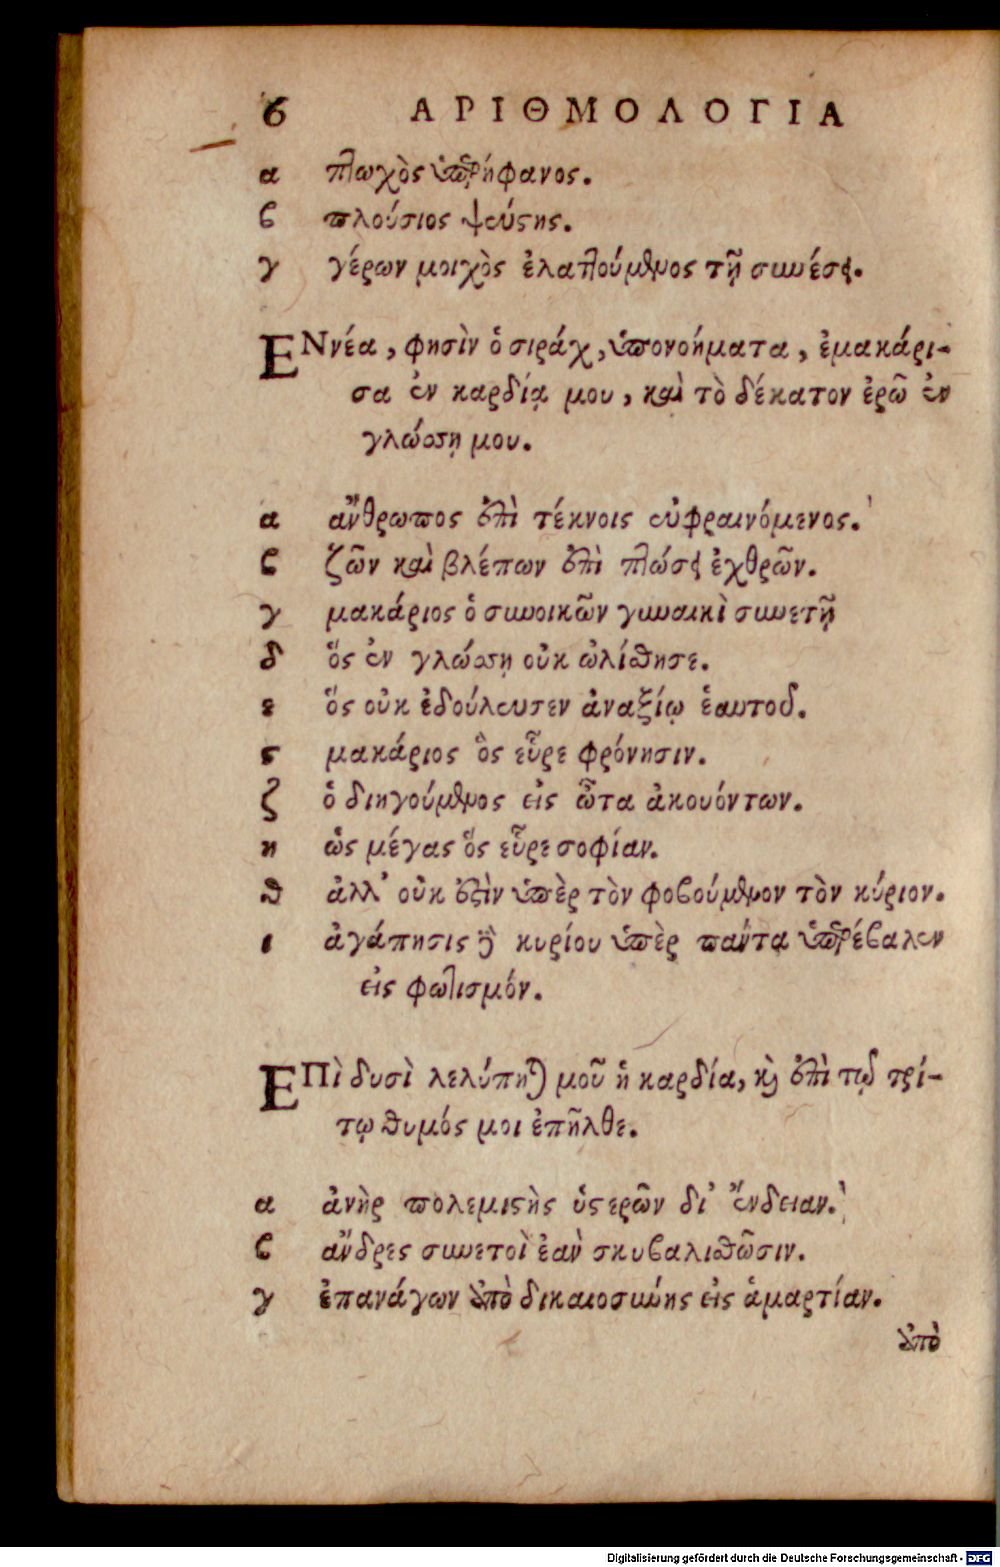 6 ΑΡΙΘΜΟΛΟΓΙΑ
α πτωχὸς ὑπερήφανος.
ϐ πλούσιος ψεύστης.
γ γέρων μοιχὸς ἐλαττούμενος τῇ συνέσει.
ΕΝνέα, φησὶν ὁ σιράχ, ὑπονοήματα, ἐμακάρι-
σα ἐν καρδίᾳ μου, καὶ τὸ δέκατον ἐρῶ ἐν
γλώσσῃ μου.
α ἄνθρωπος ἐπὶ τέκνοις εὐφραινόμενος.
ϐ ζῶν καὶ βλέπων ἐπὶ πτώσει ἐχθρῶν.
γ μακάριος ὁ συνοικῶν γυναικὶ συνετῇ
δ ὅς ἐν γλώσσῃ οὐκ ὠλίσθησε.
ε ὅς οὐκ ἐδούλευσεν ἀναξίῳ ἑαυτοῦ.
ϛ μακάριος ὃς εὗρε φρόνησιν.
ζ ὁ διηγούμενος εἰς ὦτα ἀκουόντων.
η ὡς μέγας ὅς εὗρε σοφίαν.
θ ἀλλ' οὐκ ἔστιν ὑπὲρ τὸν φοϐούμενον τὸν κύριον.
ι ἀγάπησις τοῦ κυρίου ὑπὲρ πάντα ὑπερέϐαλεν
εἰς φωτισμόν.
ΕΠὶ δυσὶ λελύπηται μοῦ ἡ καρδία, καὶ ἐπὶ τῷ τρί-
τῳ θυμός μοι ἐπῆλθε.
α ἀνὴρ πολεμιστὴς ὑστερῶν δι' ἔνδειαν.
ϐ ἄνδρες συνετοὶ ἐὰν σκυϐαλισθῶσιν.
γ ἐπανάγων ἀπὸ δικαιοσύνης εἰς ἁμαρτίαν.
ἀπὸ
Digitalisierung gefördert durch die Deutsche Forschungsgemeinschaft - DFG